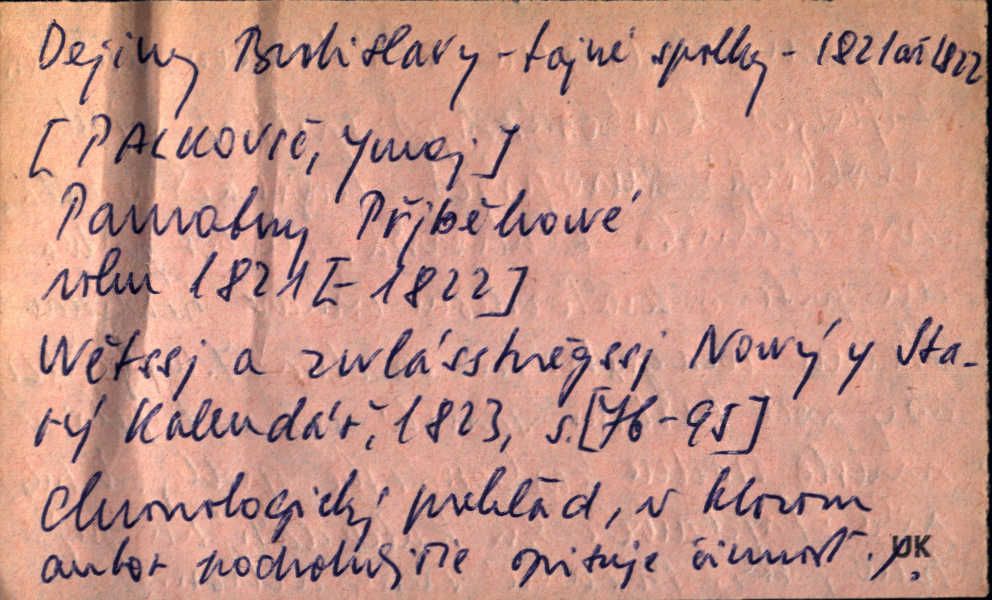 Dejiny Bratislavy - tajné spolky - 1821 až 1822
[PALKOVIČ, Juraj]
Pamatny Přjběhowé
roku 1821[-1822]
Wětssj a zwlásstněgssj Nowý y Sta-
rý Kalendář, 1823, s.[76-95]
Chronologický prehlad, v ktorom
autor podrobnejšie opisuje činnosť.
PK